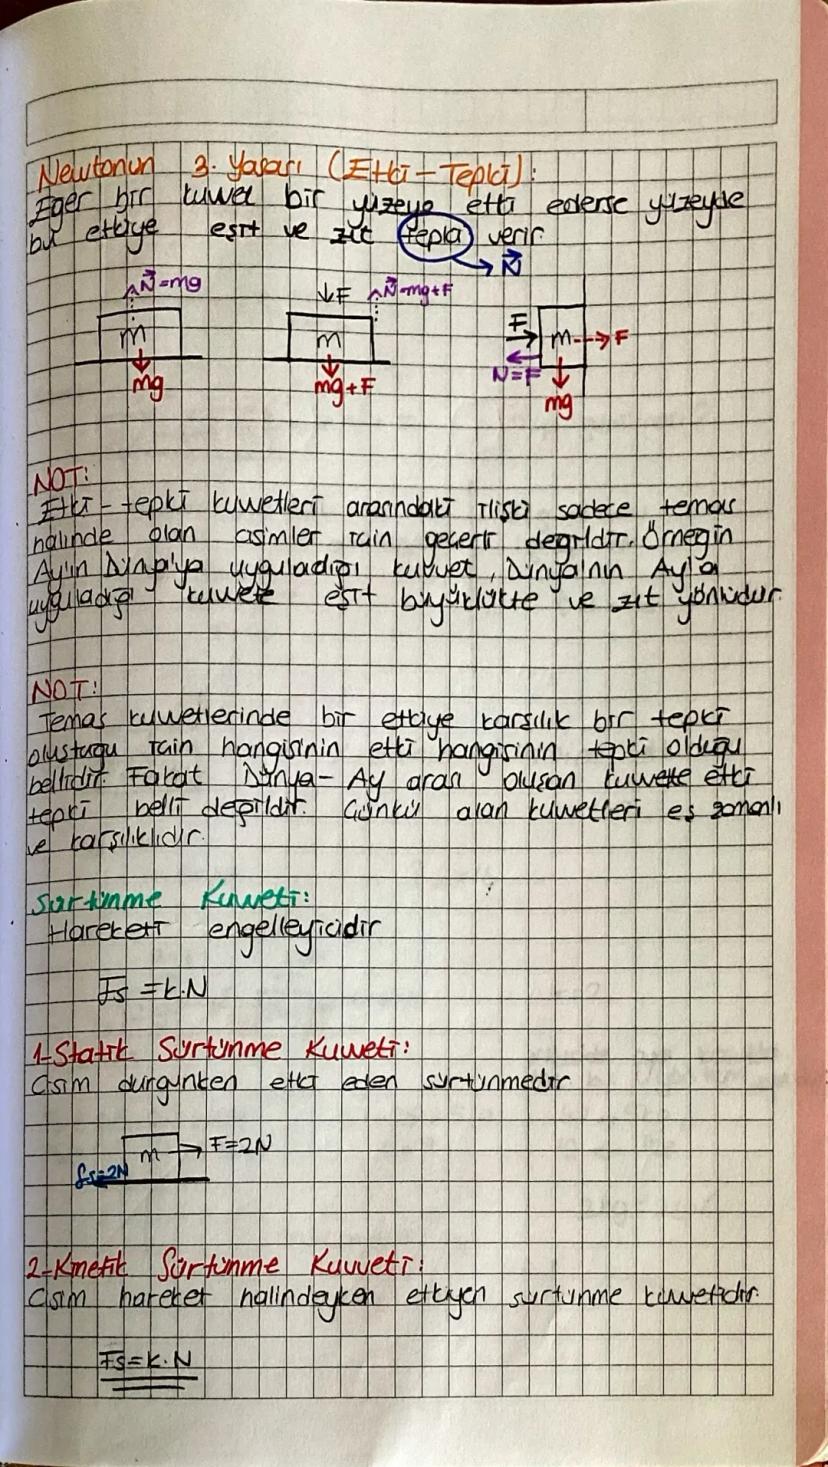 Newtonun 3. Yasası (Etki-Tepki):
Eğer bir kuvvet bir yüzeye etki ederse yüzeyde
bu etkiye eşit ve zıt tepki verir
N
N=mg
F
N=mg+F
m
m
F
m
F
N=F
mg
mg+F
mg
NOT:
Etki-tepki kuvvetleri arasındaki ilişki sadece temas
halinde olan cisimler için geçerli değildir. Örneğin
Ay'ın Dünya'ya uyguladığı kuvvet, Dünya'nın Ay'a
uyguladığı kuvvete eşit büyüklükte ve zıt yönlüdür.
NOT:
Temas kuvvetlerinde bir etkiye karşılık bir tepki
oluştuğu için hangisinin etki hangisinin tepki olduğu
bellidir. Fakat Dünya-Ay arası oluşan kuvvette etki
tepki belli değildir. Çünkü alan kuvvetleri eş zamanlı
ve karşılıklıdır.
Sürtünme Kuvveti:
Hareketi engelleyicidir
Fs = k.N
1-Statik Sürtünme Kuvveti:
Cisim durgunken etki eden sürtünmedir
m
F=2N
fs=2N
2-Kinetik Sürtünme Kuvveti:
Cisim hareket halindeyken etkiyen sürtünme kuvvetidir.
Fs=k.N